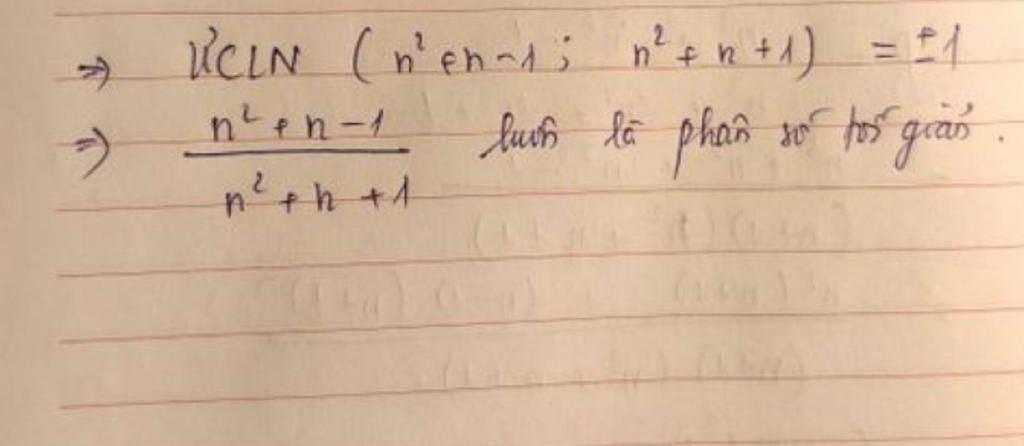 => ƯCLN ( n² + n - 1 ; n² + n + 1 ) = ±1
=> n² + n - 1
luôn là phân số tối giản .
n² + n + 1